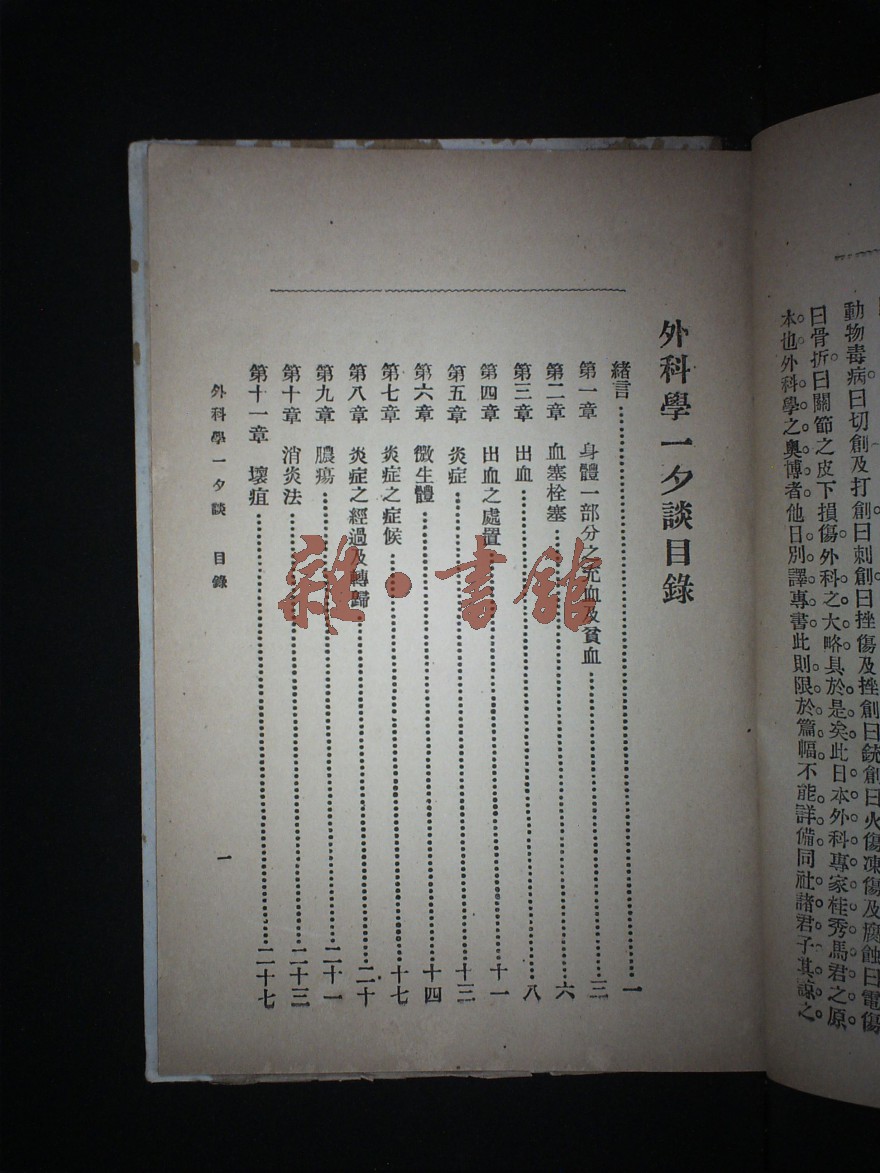 動物毒病曰切創及打創曰刺創曰挫傷及挫創曰銃創曰火傷凍傷及腐蝕曰電傷
曰骨折曰關節之皮下損傷外科之大略具於是矣此日本外科專家桂秀馬君之原
本也外科學之奧博者他日別譯專書此則限於篇幅不能詳備同社諸君子其諒之
外科學一夕談目錄
緒言……一
第一章 身體一部分之充血及貧血……三
第二章 血塞栓塞……六
第三章 出血……八
第四章 出血之處置……十一
第五章 炎症……十三
第六章 微生體……十四
第七章 炎症之症候……十七
第八章 炎症之經過及轉歸……二十
第九章 膿瘍……二十一
第十章 消炎法……二十三
第十一章 壞疽……二十七
外科學一夕談 目錄
一
雜·書館